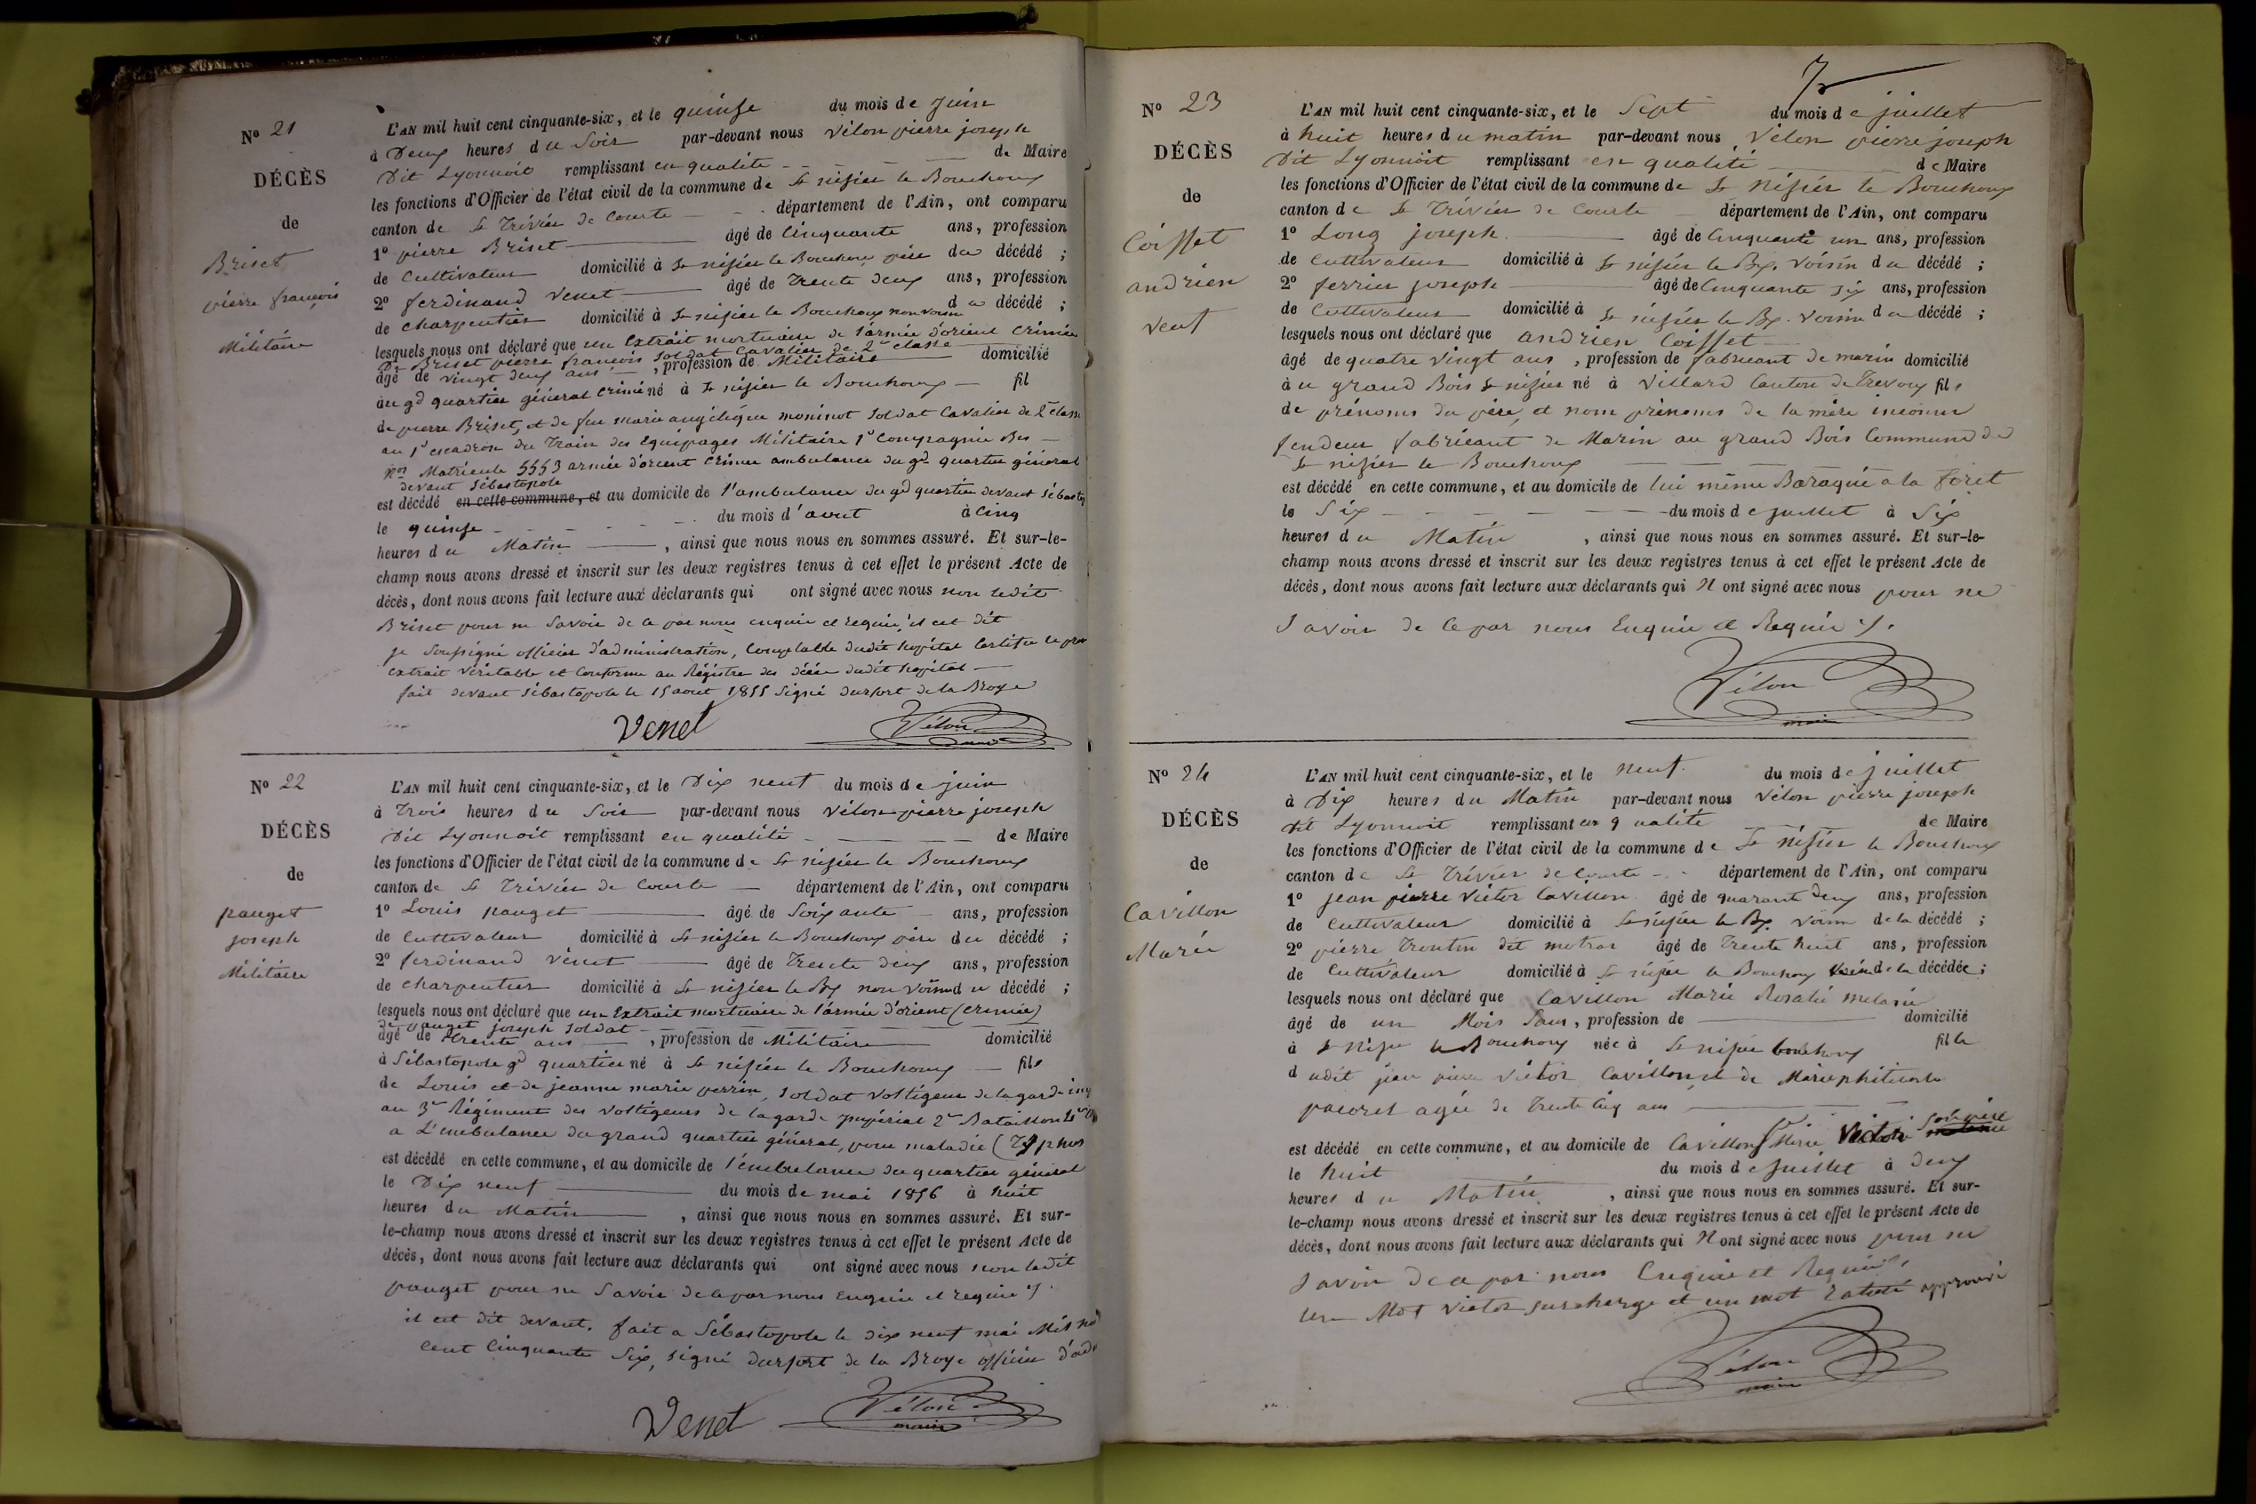 Nº 21
DÉCÈS
de
Briset
pierre françois
Militaire
L'AN mil huit cent cinquante-six, et le quinze du mois de Juin
à Deux heures du Soir par-devant nous Vélon pierre joseph
Dit Lyonnoit remplissant en qualité de Maire
les fonctions d'Officier de l'état civil de la commune de St nisier le Bouchoux
canton de St Trivier de Courte département de l'Ain, ont comparu
1º pierre Briset âgé de Cinquante ans, profession
de Cultivateur domicilié à St nisier le Bouchoux père du décédé ;
2º ferdinand Venet âgé de Trente deux ans, profession
de Charpentier domicilié à St nisier le Bouchoux non voisin du décédé ;
lesquels nous ont déclaré que un Extrait mortuaire de l'armée d'orient Crimée
De Briset pierre françois Soldat Cavalier de 2e classe
âgé de vingt deux ans, profession de Militaire domicilié
au gd quartier général Crimé né à St nisier le Bouchoux fil
de pierre Briset, et de feu marie angélique moninot Soldat Cavalier de 2e classe
au 1er escadron du Train des Equipages Militaire 1e Compagnie Bis
Nos Matricule 5553 armée d'orient Crimée ambulance du gd quartier général
devant Sébastopole
est décédé en cette commune, et au domicile de l'ambulance du gd quartier devant Sébasto
le quinze du mois d'aout à Cinq
heures du Matin, ainsi que nous nous en sommes assuré. Et sur-le-
champ nous avons dressé et inscrit sur les deux registres tenus à cet effet le présent Acte de
décès, dont nous avons fait lecture aux déclarants qui ont signé avec nous non ledit
Briset pour ne Savoir de ce par nous enquis et requis, il est dit
je Soussigné officier d'administration, Comptable dudit hopital Certifie le pré
extrait Véritable et Conforme au Régistre des décés dudit hopital
fait devant Sébastopole le 15 aout 1855 Signé Durfort de la Broye
Venet Vélon
maire
Nº 22
DÉCÈS
de
pauget
joseph
Militaire
L'AN mil huit cent cinquante-six, et le Dix neuf du mois de juin
à Trois heures du Soir par-devant nous Vélon pierre joseph
Dit Lyonnoit remplissant en qualité de Maire
les fonctions d'Officier de l'état civil de la commune de St nisier le Bouchoux
canton de St Trivier de Courte département de l'Ain, ont comparu
1º Louis pauget âgé de Soixante ans, profession
de Cultivateur domicilié à St nisier le Bouchoux père du décédé ;
2º ferdinand Venet âgé de Trente deux ans, profession
de Charpentier domicilié à St nisier le Bx non voisin du décédé ;
lesquels nous ont déclaré que un Extrait mortuaire de l'armée d'orient (Crimée)
de pauget joseph Soldat
âgé de Trente ans, profession de Militaire domicilié
à Sébastopole gd quartier né à St nisier le Bouchoux fils
de Louis et de jeanne marie perrin, Soldat Voltigeur de la garde imp
au 3e Régiment des Voltigeurs de la garde impérial 2e Bataillon
a L'embulance du grand quartier général, pour maladie (Typhus
est décédé en cette commune, et au domicile de l'embulance du quartier général
le Dix neuf du mois de mai 1856 à huit
heures du Matin, ainsi que nous nous en sommes assuré. Et sur-
le-champ nous avons dressé et inscrit sur les deux registres tenus à cet effet le présent Acte de
décès, dont nous avons fait lecture aux déclarants qui ont signé avec nous non ledit
pauget pour ne Savoir de ce par nous Enquis et requis
il est dit devant. fait a Sébastopole le dix neuf mai Mil huit
cent Cinquante Six, signé durfort de la Broye officier d'ad
Venet Vélon
maire
Nº 23
DÉCÈS
de
Coisset
andrien
veuf
L'AN mil huit cent cinquante-six, et le Sept du mois de juillet
à huit heures du matin par-devant nous Vélon pierre joseph
Dit Lyonnoit remplissant en qualité de Maire
les fonctions d'Officier de l'état civil de la commune de St Nisier le Bouchoux
canton de St Trivier de Courte département de l'Ain, ont comparu
1º Long joseph âgé de Cinquante un ans, profession
de Cultivateur domicilié à St nisier le Bx. Voisin du décédé ;
2º ferrier joseph âgé de Cinquante six ans, profession
de Cultivateur domicilié à St nisier le Bx. Voisin du décédé ;
lesquels nous ont déclaré que andrien Coisset
âgé de quatre vingt ans, profession de fabricant de marin domicilié
à u grand Bois St nisier né à Villard Canton de Trevoux fils
de prénoms du père, et nom prénoms de la mère inconnu
fendeur fabricant de Marin au grand Bois Commune de
St nisier le Bouchoux
est décédé en cette commune, et au domicile de lui même Baraque a la foret
le Six du mois de juillet à Six
heures du Matin, ainsi que nous nous en sommes assuré. Et sur-le-
champ nous avons dressé et inscrit sur les deux registres tenus à cet effet le présent Acte de
décès, dont nous avons fait lecture aux déclarants qui N ont signé avec nous pour ne
Savoir de ce par nous Enquis et Requis
Vélon
maire
Nº 24
DÉCÈS
de
Cavillon
Marie
L'AN mil huit cent cinquante-six, et le neuf du mois de juillet
à Dix heures du Matin par-devant nous Vélon pierre joseph
Dit Lyonnoit remplissant en qualité de Maire
les fonctions d'Officier de l'état civil de la commune de St nisier le Bouchoux
canton de St Trivier de Courte département de l'Ain, ont comparu
1º jean pierre Victor Cavillon âgé de quarante Deux ans, profession
de Cultivateur domicilié à St nisier le Bx. Voisin de la décédé ;
2º pierre Trontin dit motras âgé de Trente huit ans, profession
de Cultivateur domicilié à St nisier le Bouchoux Voisin de la décédée ;
lesquels nous ont déclaré que Cavillon Marie Rosalie melanie
âgé de un Mois Sans, profession de domicilié
à St nisier le Bouchoux née à St nisier bouchoux fille
d udit jean pierre Victor Cavillon, et de Marie
pacoret agée de Trente Cinq ans
est décédé en cette commune, et au domicile de Cavillon Victor Son père
le huit du mois de Juillet à Deux
heures du Matin, ainsi que nous nous en sommes assuré. Et sur-
le-champ nous avons dressé et inscrit sur les deux registres tenus à cet effet le présent Acte de
décès, dont nous avons fait lecture aux déclarants qui N ont signé avec nous pour ne
Savoir de ce par nous Enquis et Requis
un Mot Victor surcharge et un mot Raturé approuvé
Vélon
maire